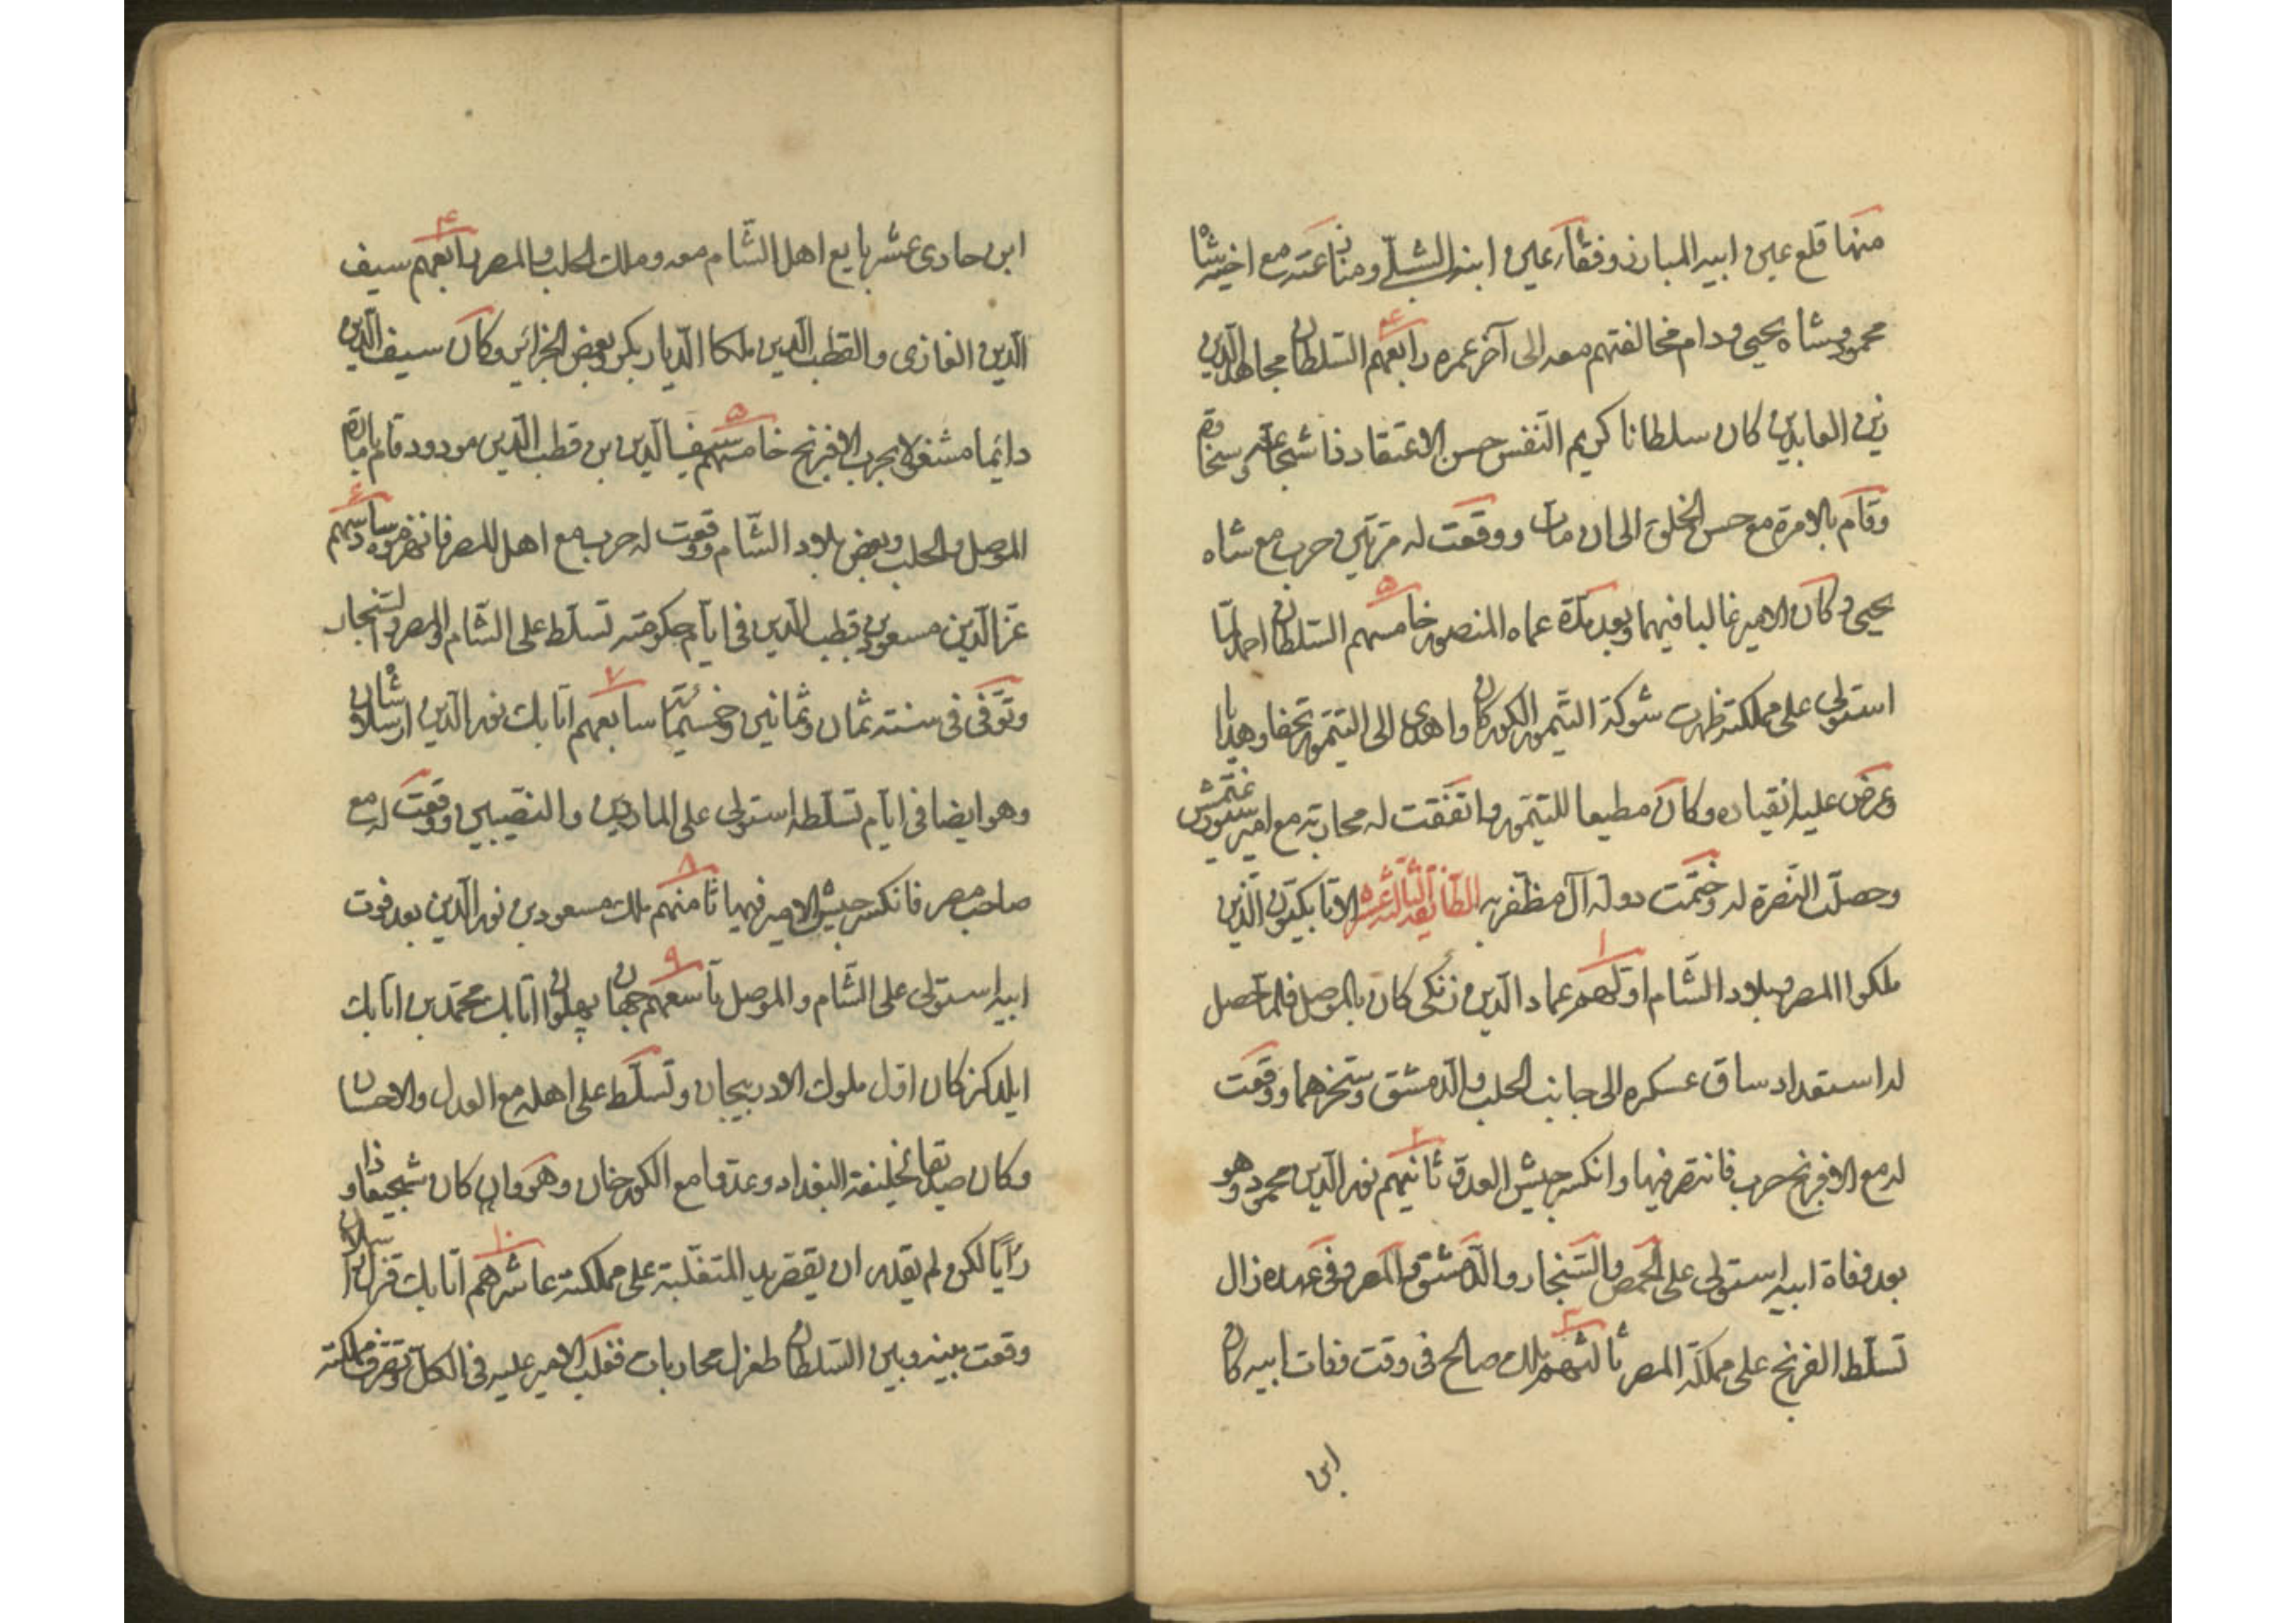 منها قلع عين ابيه المبارز وفقأ عين ابنه الشبلي ومنازعته مع اخيه شاه
محمود وشاه يحيى ودام مخالفتهم معه الى آخر عمره رابعهم السلطان مجاهد الدين
زين العابدين كان سلطانا كريم النفس حسن الاعتقاد ذا شجاعة وسخاوة
وقام بالامرة مع حسن الخلق الى ان مات ووقعت له مرتين حرب مع شاه
يحيى وكان الامير غالبا فيهما وبعد مدة عماه المنصور خامسهم السلطان احمد لما
استولى على مملكته ظهرت شوكة التيمور الكوركان واهدى الى التيمور تحفا وهدايا
وعرض عليه انقياده وكان مطيعا للتيمور واتفقت له محاربة مع امير سيورغتمش
وحصلت النصرة له وختمت دولة آل مظفر به الطائفة الثالثة عشر الاتابكيون الذين
ملكوا المصر وبلاد الشام اولهم عماد الدين زنكى كان بالموصل فلما حصل
له استعداد ساق عسكره الى جانب الحلب والدمشق وسخرهما ووقعت
له مع الافرنج حرب فانتصر فيها وانكسر جيش العدو ثانيهم نور الدين محمود وهو
بعد وفاة ابيه استولى على الحمص والسنجار والدمشق والمصر وفى عهده زال
تسلط الفرنج على مملكة المصر ثالثهم ملك صالح فى وقت وفات ابيه كان
ابن
ابن حادى عشر بايع اهل الشام معه وملك الحلب والمصر رابعهم سيف
الدين الغازى والقطب الدين ملكا الديار بكر وبعض الجزائر وكان سيف الدين
دائما مشغولا بحرب الافرنج خامسهم سيف الدين بن قطب الدين مودود قام بامارة
الموصل والحلب وبعض بلاد الشام ووقعت له حرب مع اهل المصر فانهزموه سادسهم
عز الدين مسعود بن قطب الدين فى ايام حكومته تسلط على الشام والمصر والسنجار
وتوفى فى سنة ثمان وثمانين وخمسمائة سابعهم اتابك نور الدين ارسلان شاه
وهو ايضا فى ايام تسلطه استولى على الماردين والنصيبين ووقعت له مع
صاحب مصر فانكسر جيش الامير فيها ثامنهم ملك مسعود بن نور الدين بعد فوت
ابيه استولى على الشام والموصل تاسعهم جهان پهلوان اتابك محمد بن اتابك
ايلدكز كان اول ملوك الادربيجان وتسلط على اهله مع العدل والاحسان
وكان صديقا لخليفة البغداد وعدوا مع الكورخان وهو وان كان شجيعا وذا
رأيا لكن لم يقدر ان يقصر يد المتغلبة على مملكته عاشرهم اتابك قزل ارسلان
وقعت بينه وبين السلطان طغرل محاربات فغلب الامير عليه فى الكل وتصرف مملكته